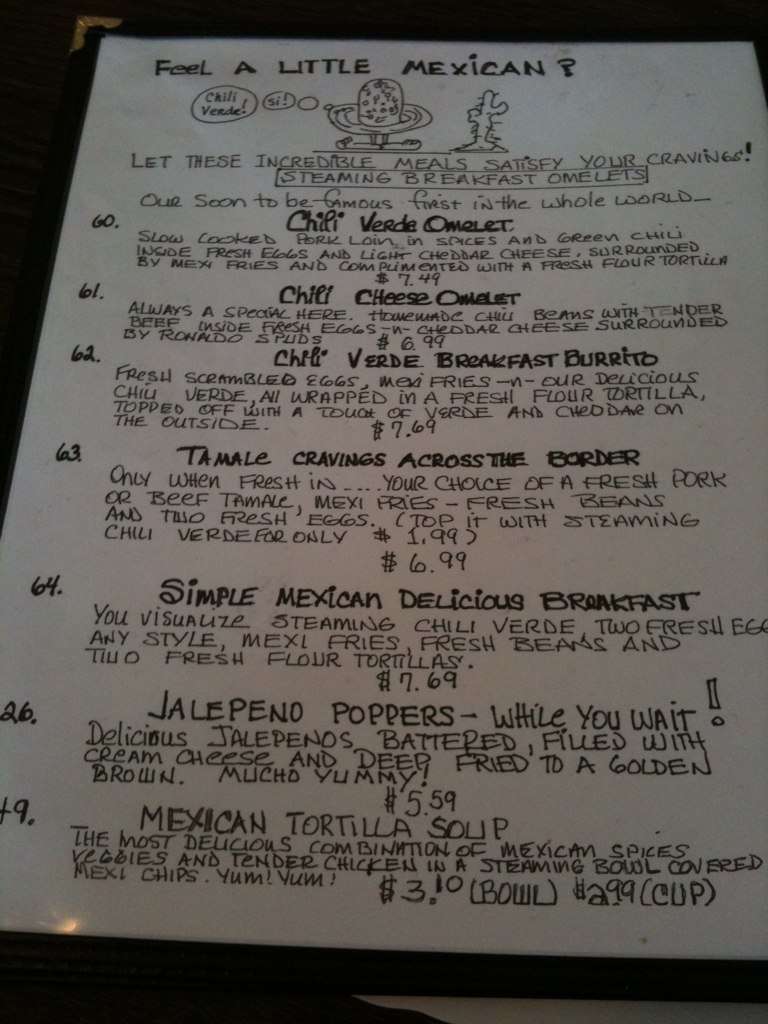 Feel A LITTLE MEXICAN?
Chili Verde! Si!
LET THESE INCREDIBLE MEALS SATISFY YOUR CRAVINGS!
STEAMING BREAKFAST OMELETS
OUR Soon to be famous first in the whole WORLD—
60. Chili Verde Omelet
SLOW COOKED PORK LOIN, in SPICES AND GREEN CHILI
INSIDE FRESH EGGS AND LIGHT CHEDDAR CHEESE, SURROUNDED
BY MEXI FRIES AND COMPLIMENTED WITH A FRESH FLOUR TORTILLA
$7.49
61. Chili CHEESE OMELET
ALWAYS A SPECIAL HERE. HOMEMADE CHILI BEANS WITH TENDER
BEEF INSIDE FRESH EGGS -n- CHEDDAR CHEESE SURROUNDED
BY RONALDO SPUDS $6.99
62. Chili VERDE BREAKFAST BURRITO
FRESH SCRAMBLED EGGS, MEXI FRIES -n- OUR DELICIOUS
CHILI VERDE, All WRAPPED IN A FRESH FLOUR TORTILLA,
TOPPED OFF WITH A TOUCH OF VERDE AND CHEDDAR ON
THE OUTSIDE. $7.69
63. TAMALE CRAVINGS ACROSS THE BORDER
ONLY WHEN FRESH IN .... YOUR CHOICE OF A FRESH PORK
OR BEEF TAMALE, MEXI FRIES - FRESH BEANS
AND TWO FRESH EGGS. (TOP IT WITH STEAMING
CHILI VERDE FOR ONLY $1.99)
$6.99
64. SIMPLE MEXICAN DELICIOUS BREAKFAST
YOU VISUALIZE STEAMING CHILI VERDE, TWO FRESH EGG
ANY STYLE, MEXI FRIES, FRESH BEANS AND
TWO FRESH FLOUR TORTILLAS.
$7.69
26. JALEPENO POPPERS - WHILE YOU WAIT!
Delicious JALEPENOS, BATTERED, FILLED WITH
CREAM CHEESE AND DEEP FRIED TO A GOLDEN
BROWN. MUCHO YUMMY!
$5.59
49. MEXICAN TORTILLA SOUP
THE MOST DELICIOUS COMBINATION OF MEXICAN SPICES
VEGGIES AND TENDER CHICKEN IN A STEAMING BOWL COVERED
MEXI CHIPS. YUM! YUM! $3.10 (BOWL) $2.99 (CUP)